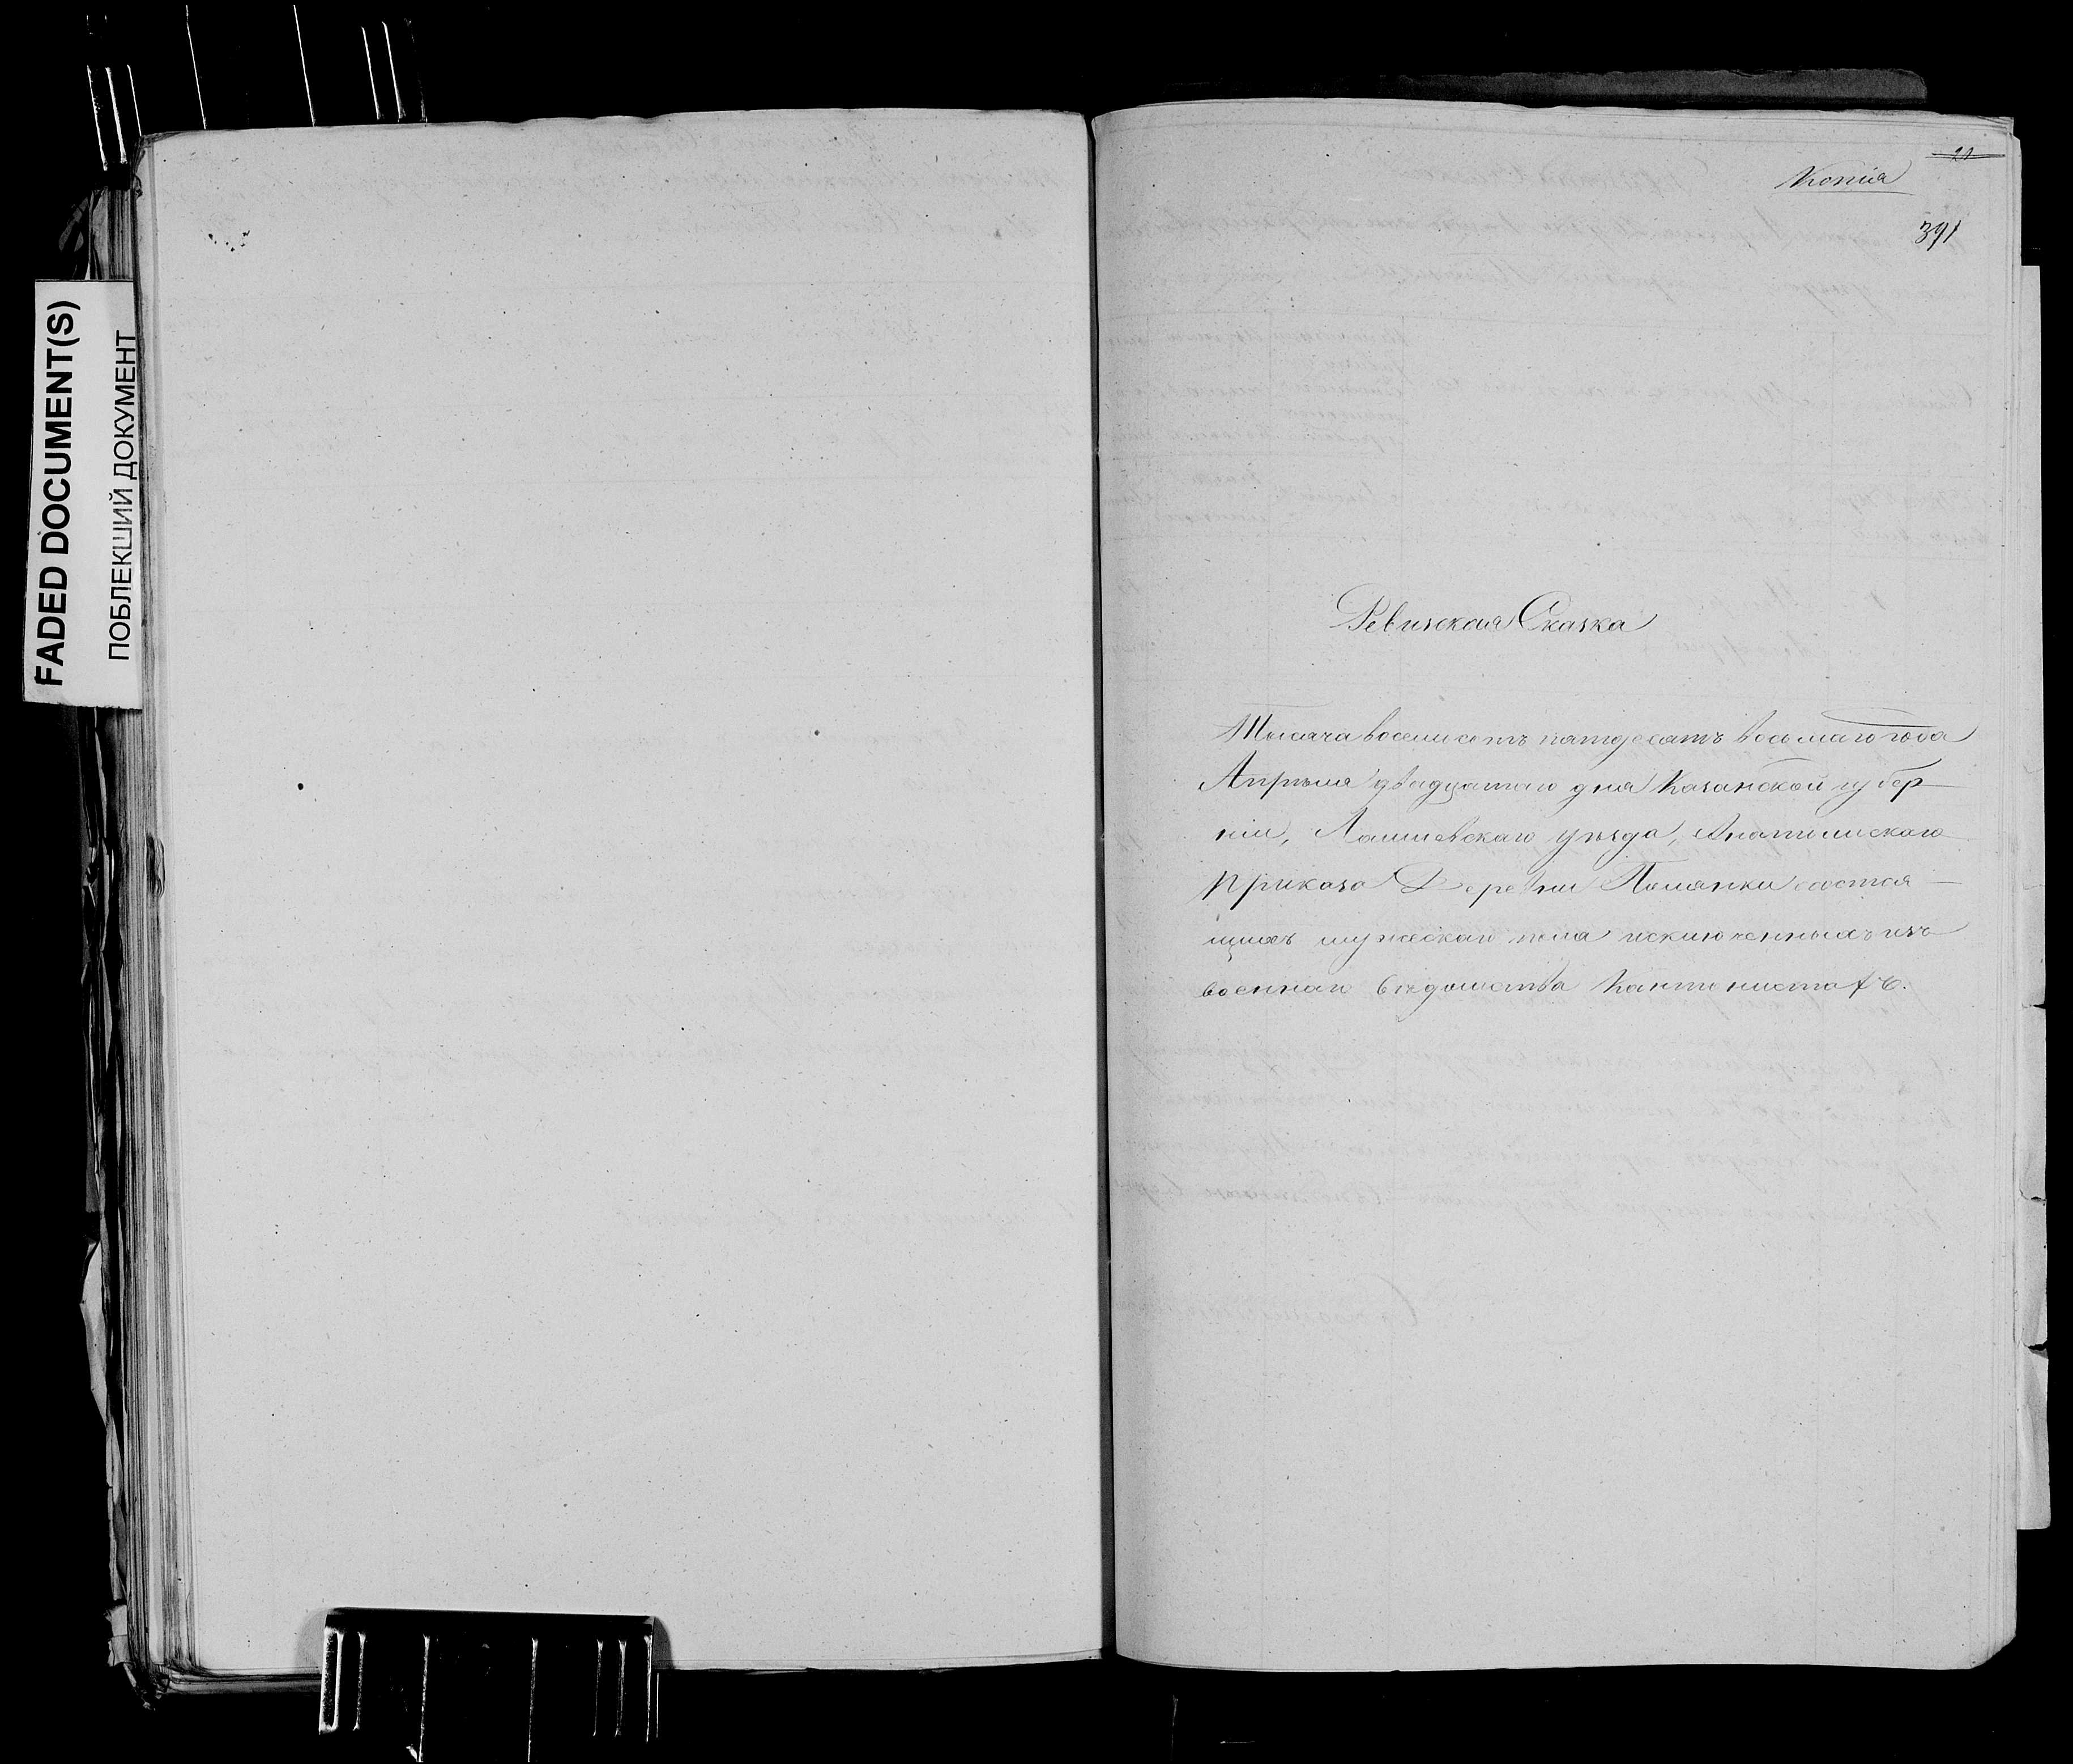 FADED DOCUMENT(S)
ПОБЛЕКШИЙ ДОКУМЕНТ
21
Копия
391
Ревизская Сказка
Тысяча восемисотъ пятдесятъ восьмаго года
Апрѣля двадцатаго дня Казанской губер-
нии, Лаишевскаго уѣзда, Анатышскаго
Приказа Деревни Полянки состоя-
щихъ мужескаго пола исключенныхъ изъ
военнаго вѣдомства Кантонистовъ.